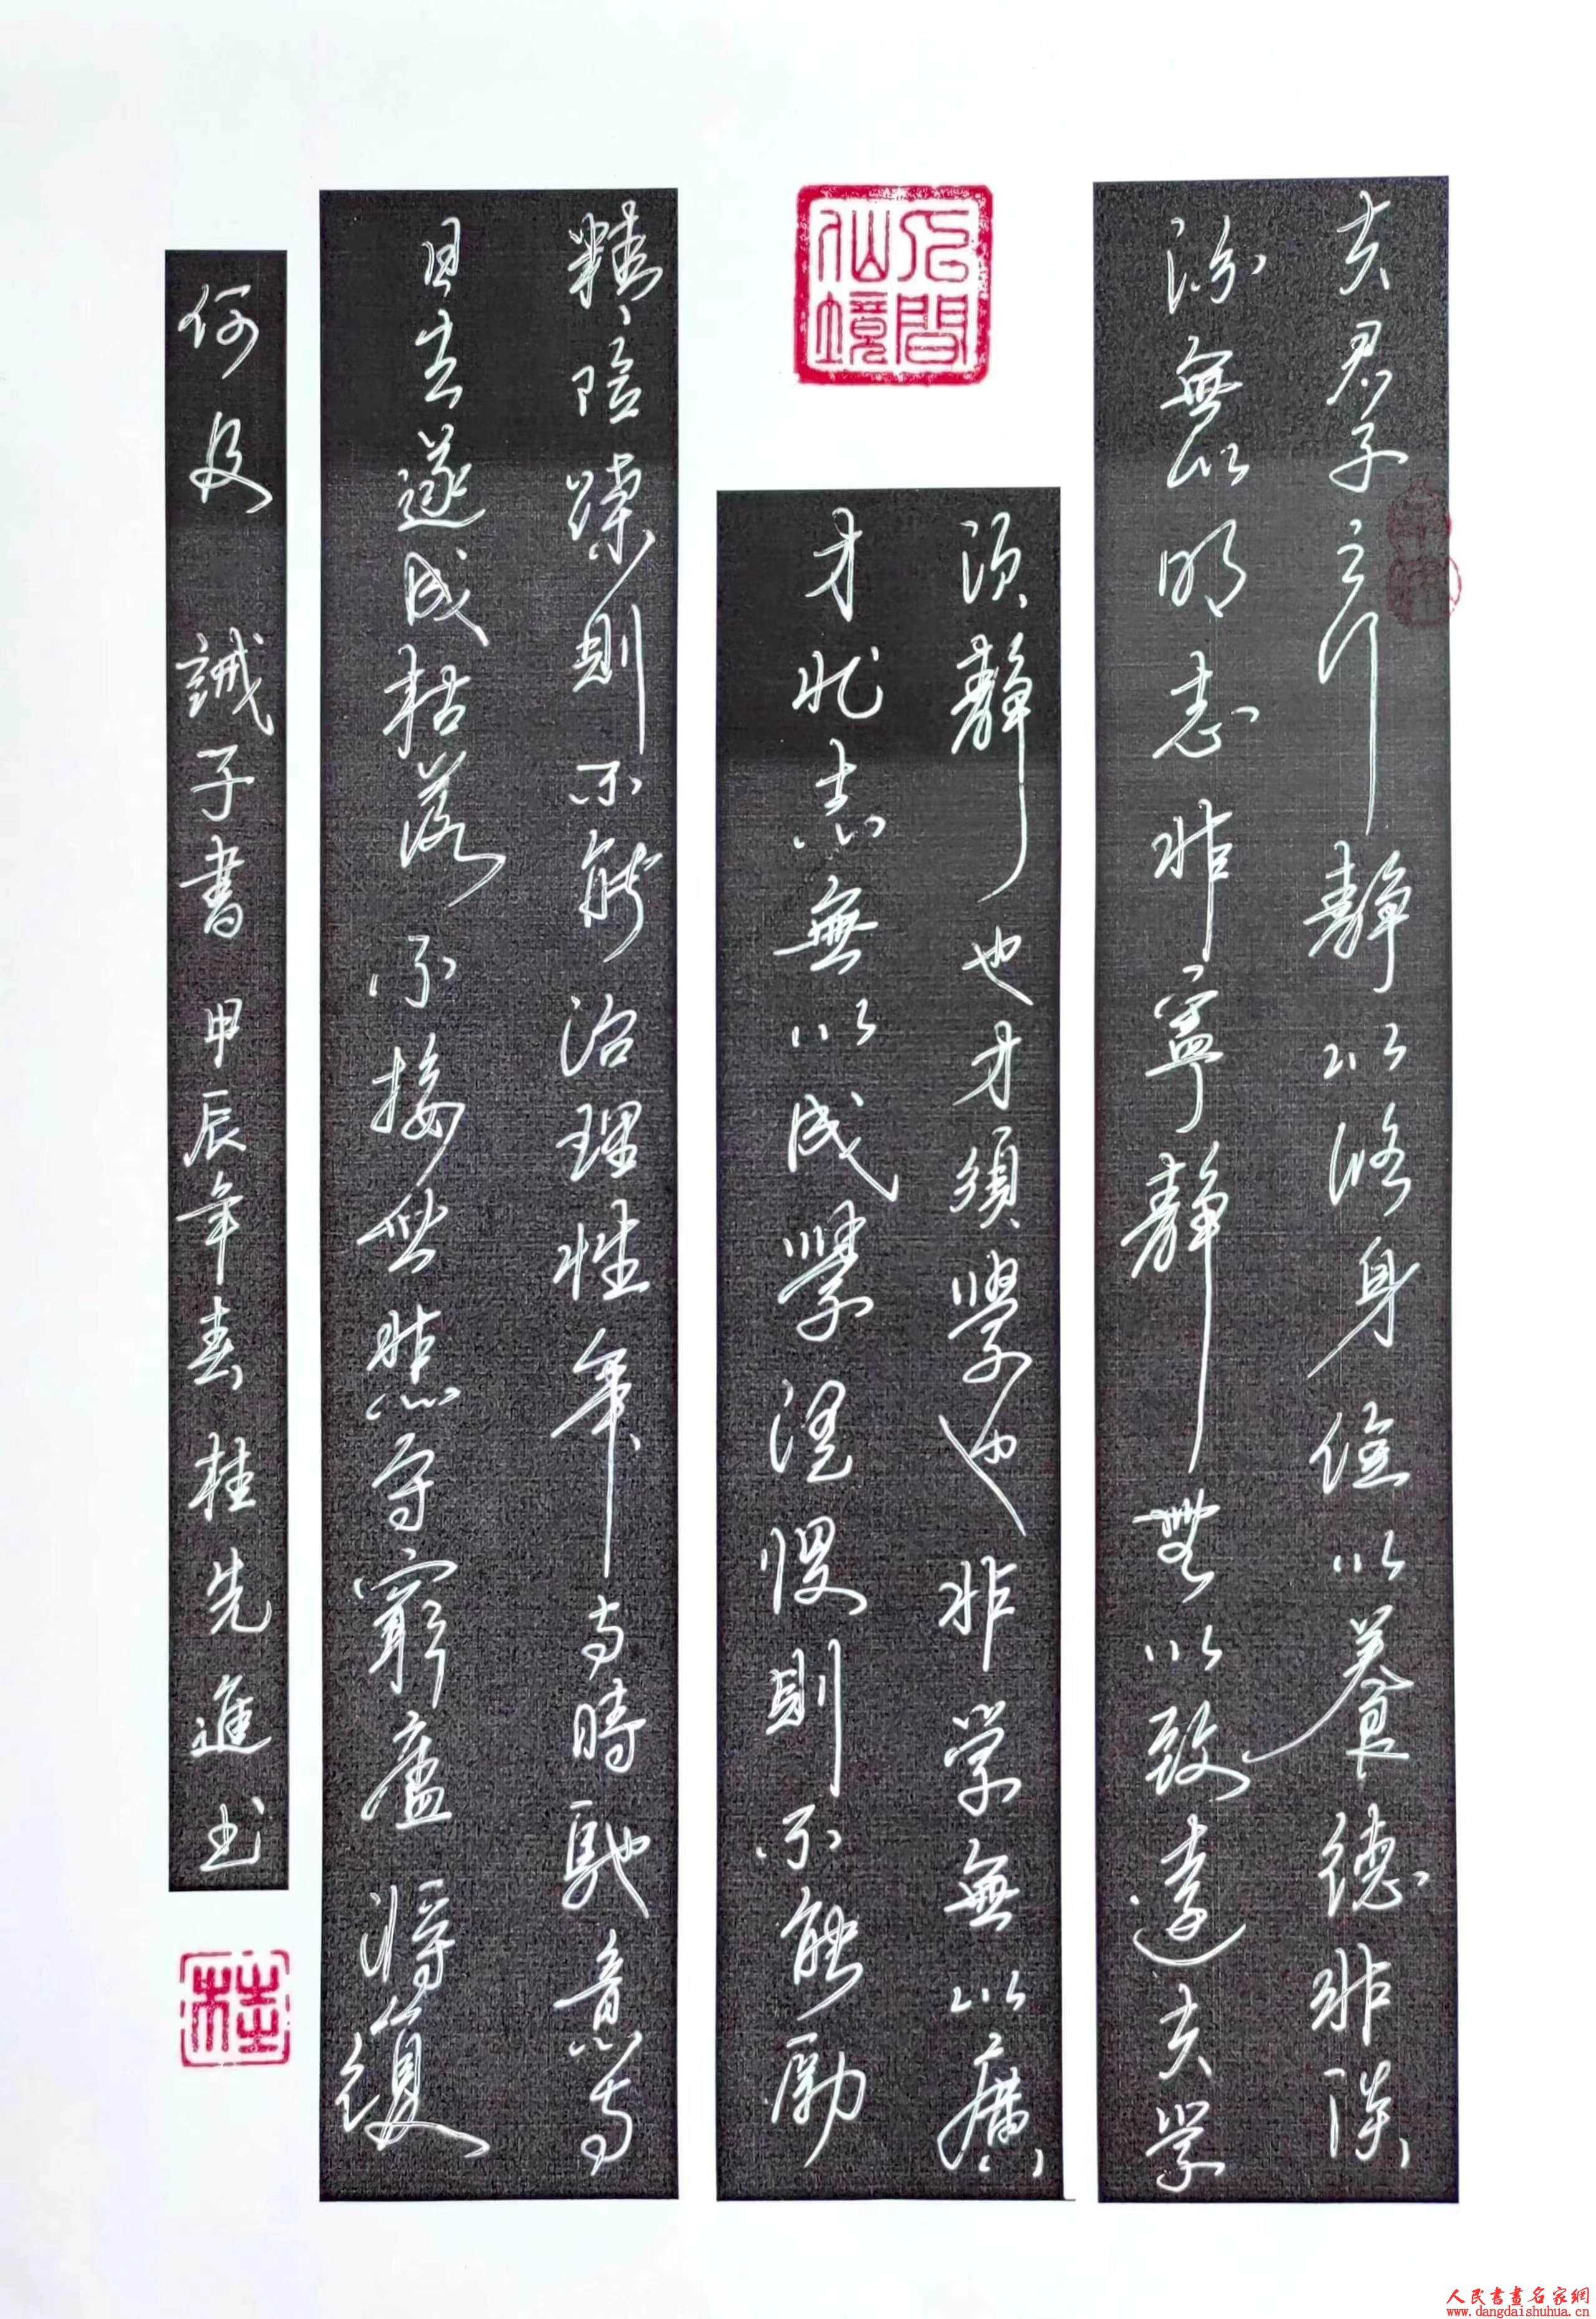 夫君子之行静以修身俭以養德非淡
泊無以明志非寧静無以致遠夫学
須静也才須學也非学無以廣
才非志無以成學淫慢則不能励
精险躁則不能治理性年与時馳意与
日去遂成枯落不接世悲守窮廬将復
何及 誡子書 甲辰年春桂先進书
人間仙境
桂
人民書畫名家網
www.dangdaishuhua.cn